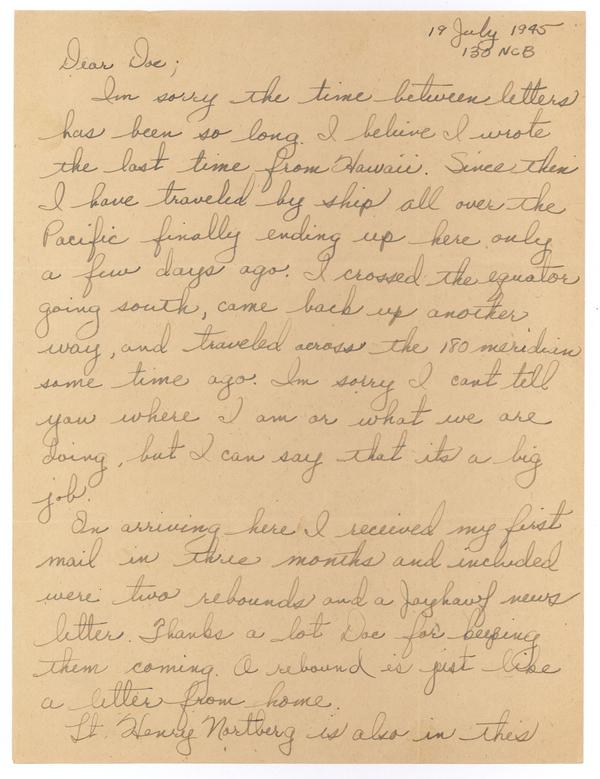 19 July 1945
130 NCB
Dear Doc;
Im sorry the time between letters
has been so long. I believe I wrote
the last time from Hawaii. Since then
I have traveled by ship all over the
Pacific finally ending up here only
a few days ago. I crossed the equator
going south, came back up another
way, and traveled across the 180 meridian
some time ago. Im sorry I cant tell
you where I am or what we are
doing, but I can say that its a big
job.
On arriving here I received my first
mail in three months and included
were two rebounds and a Jayhawk news
letter. Thanks a lot Doc for keeping
them coming. A rebound is just like
a letter from home.
Lt. Henry Nortberg is also in this